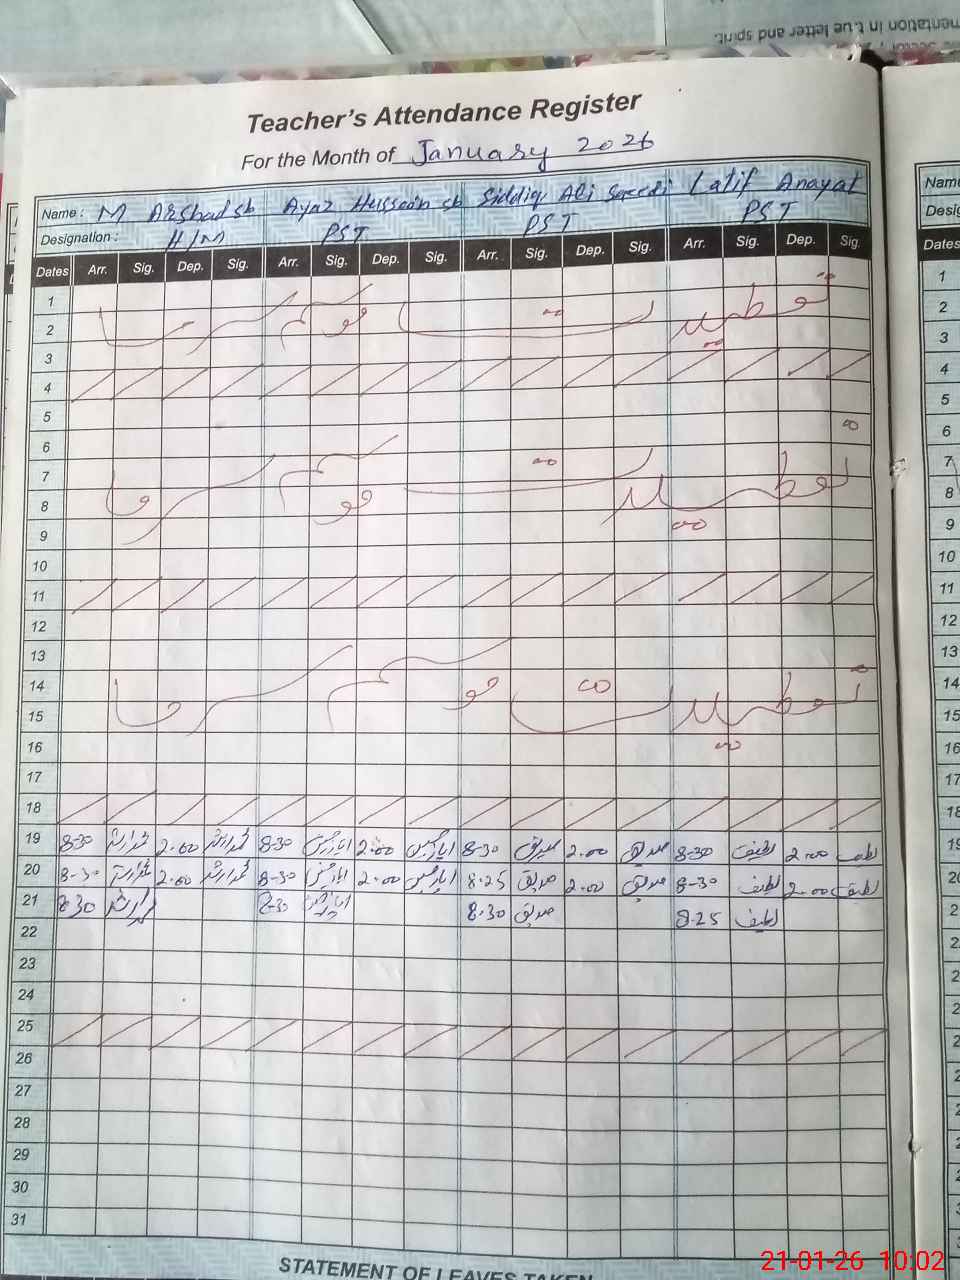 mentation in true letter and spirit.
Teacher's Attendance Register
For the Month of January 2026
Name : M Arshad sb Ayaz Hussain sb Siddiq Ali Saeedi Latif Anayat
Designation : H/M PST PST PST
Dates Arr. Sig. Dep. Sig. Arr. Sig. Dep. Sig. Arr. Sig. Dep. Sig. Arr. Sig. Dep. Sig.
1
2
3
4
5
6
7
8
9
10
11
12
13
14
15
16
17
18
19 8-30 2.00 8-30 ایاز حسین 2.00 ایاز حسین 8-30 صدیق 2.00 صدیق 8-30 لطیف 2.00 لطیف
20 8-30 2.00 8-30 ایاز حسین 2.00 ایاز حسین 8.25 صدیق 2.00 صدیق 8-30 لطیف 2.00 لطیف
21 8.30 8-30 ایاز حسین 8.30 صدیق 8.25 لطیف
22
23
24
25
26
27
28
29
30
31
STATEMENT OF LEAVES TAKEN
Name
Dates
1
2
3
4
5
6
7
8
9
10
11
12
13
14
15
16
17
18
21-01-26 10:02